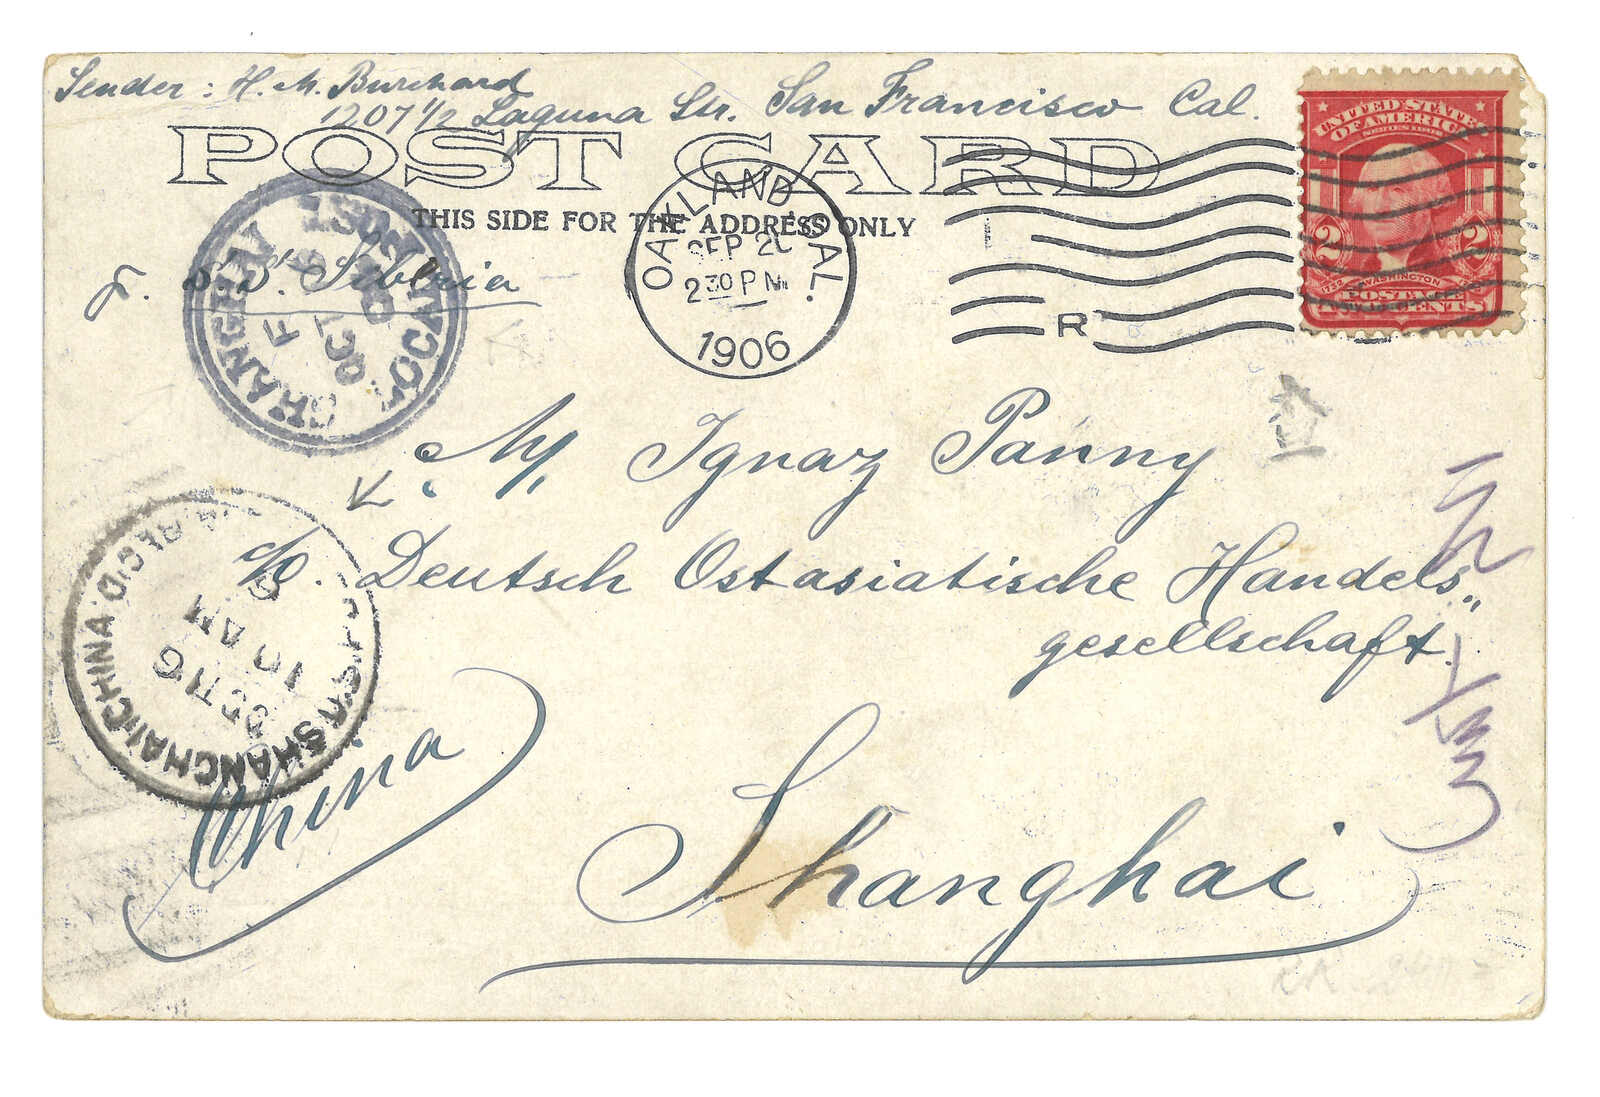 Sender: H. M. Burchard
1207 1/2 Laguna Str. San Francisco Cal.
POST CARD
THIS SIDE FOR THE ADDRESS ONLY
S.S. Siberia
SHANGHAI LOCAL POST
OCT 06
OAKLAND CAL.
SEP 20
2 30 PM
1906
R
UNITED STATES
OF AMERICA
2 2
WASHINGTON
POSTAGE
TWO CENTS
Ignaz Panny
c/o. Deutsch Ostasiatische Handels„
gesellschaft.
U.S. POSTAL SHANGHAI CHINA REC'D.
OCT 16
10 AM
China
Shanghai